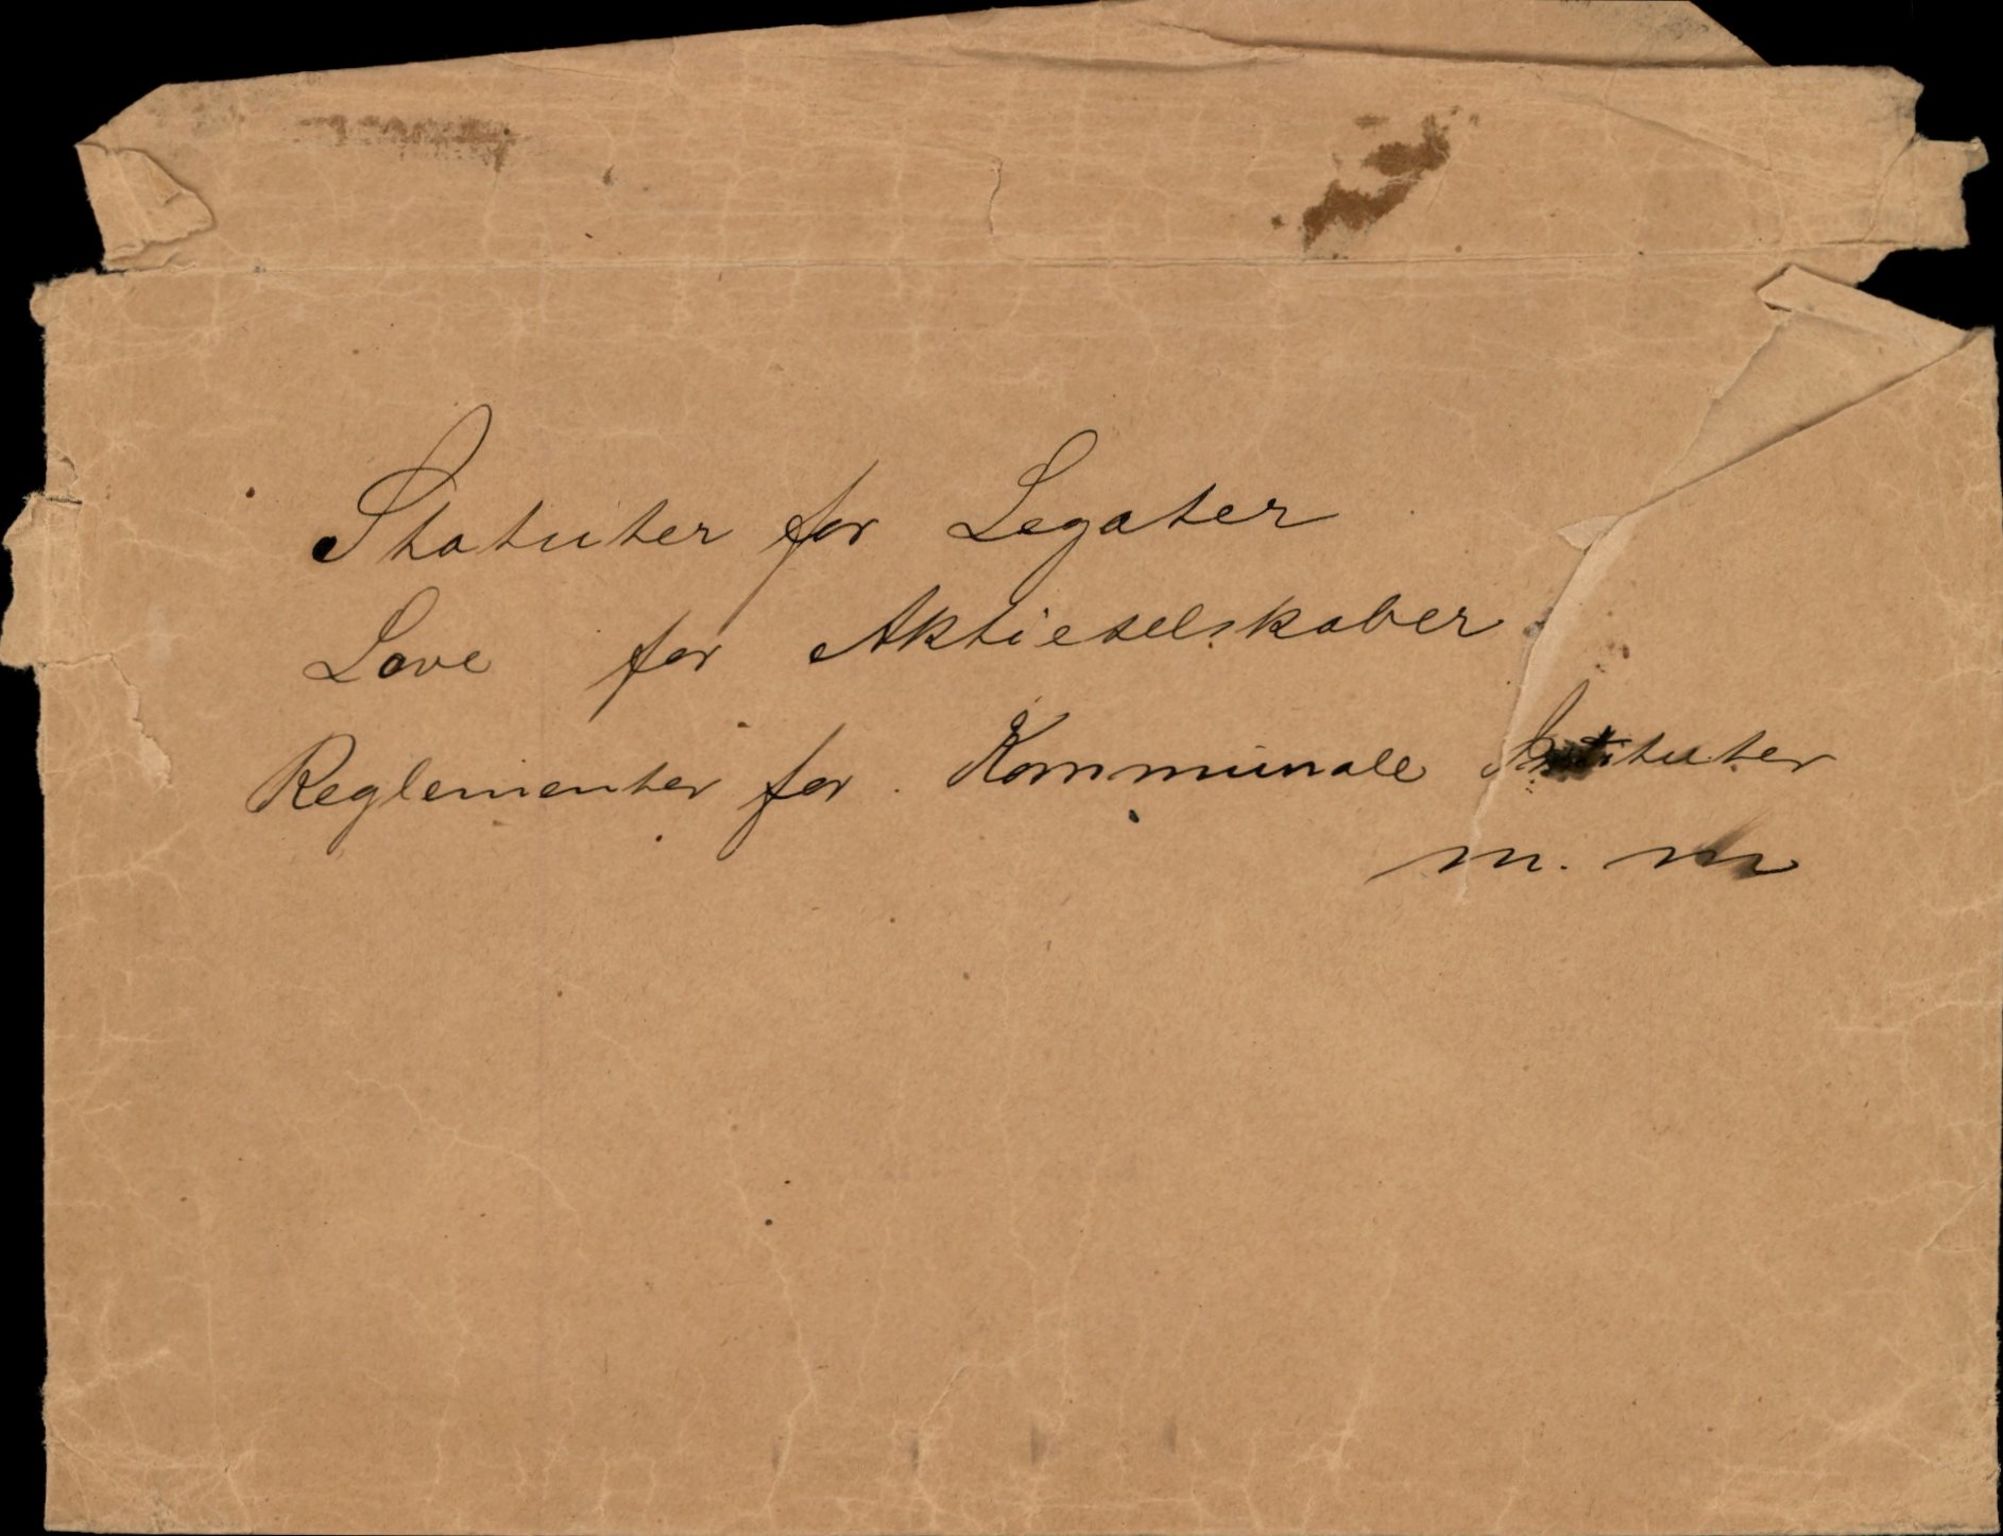 Statuter for Legater
Love for Aktieselskaber
Reglementer for Kommunale Instituter
m. m